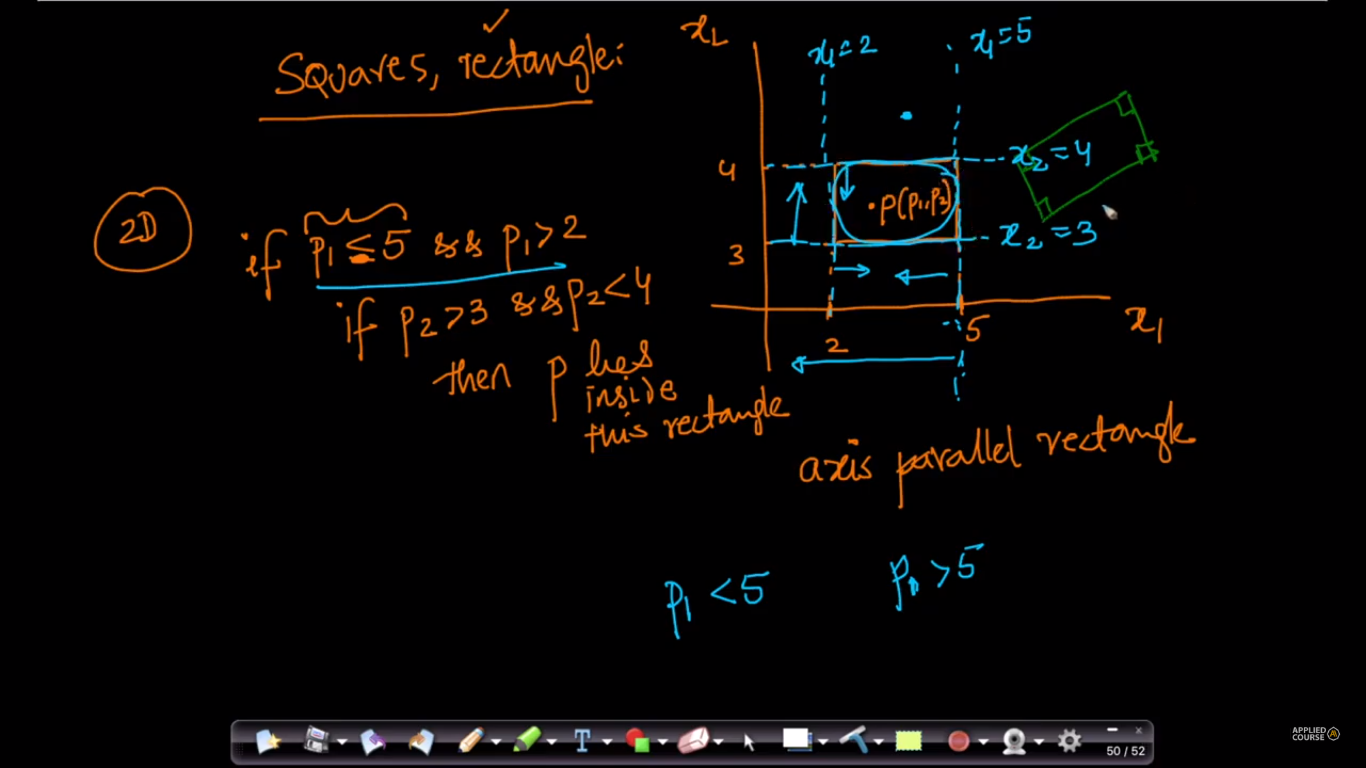 Squares, rectangle:
2D
if p₁ ≤ 5 && p₁ > 2
if p₂ > 3 && p₂ < 4
then p lies
inside
this rectangle
x₂
x₁ = 2
x₁ = 5
4
x₂ = 4
.p(p₁, p₂)
3
x₂ = 3
2
5
x₁
axis parallel rectangle
p₁ < 5
p₁ > 5
50 / 52
APPLIED
COURSE